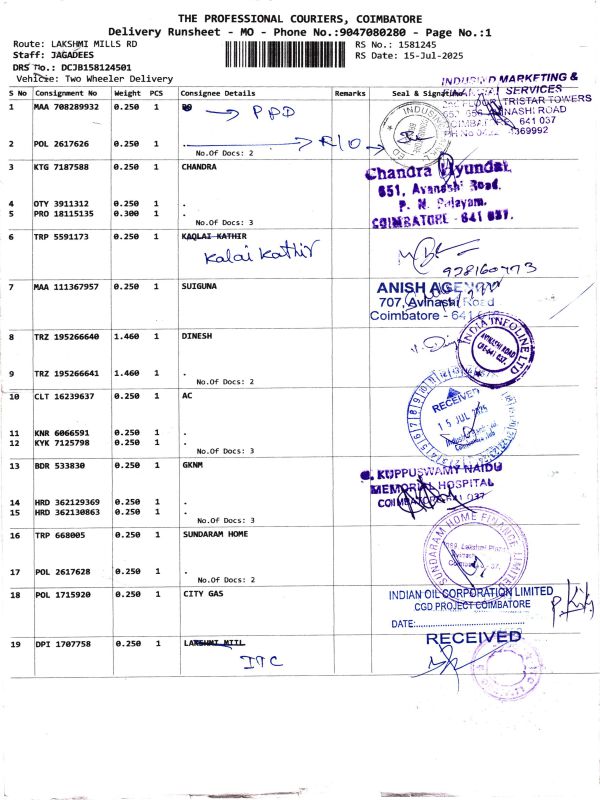 THE PROFESSIONAL COURIERS, COIMBATORE
Delivery Runsheet - MO - Phone No.:9047080280 - Page No.:1
Route: LAKSHMI MILLS RD RS No.: 1581245
Staff: JAGADEES RS Date: 15-Jul-2025
DRS No.: DCJB158124501
Vehicle: Two Wheeler Delivery
S No Consignment No Weight PCS Consignee Details Remarks Seal & Signature
INDUSIND MARKETING &
FINANCIAL SERVICES
TRISTAR TOWERS
AVINASHI ROAD
641 037
1 MAA 708289932 0.250 1 → PPD
2 POL 2617626 0.250 1 . → R/O →
No.Of Docs: 2
3 KTG 7187588 0.250 1 CHANDRA
Chandra Hyundai
651, Avanashi Road,
P. N. Palayam,
COIMBATORE - 641 037.
4 OTY 3911312 0.250 1 .
5 PRO 18115135 0.300 1 .
No.Of Docs: 3
6 TRP 5591173 0.250 1 KAQLAI KATHIR
Kalai Kathir
7 MAA 111367957 0.250 1 SUIGUNA
ANISH AGENCY
707, Avinashi Road
Coimbatore - 641
8 TRZ 195266640 1.460 1 DINESH
INDIA INFOLINE LTD
AVINASHI ROAD
CBE-641 037.
9 TRZ 195266641 1.460 1 .
No.Of Docs: 2
10 CLT 16239637 0.250 1 AC
RECEIVED
15 JUL 2025
11 KNR 6066591 0.250 1 .
12 KYK 7125798 0.250 1 .
No.Of Docs: 3
13 BDR 533830 0.250 1 GKNM
G. KUPPUSWAMY NAIDU
MEMORIAL HOSPITAL
COIMBATORE-641 037
14 HRD 362129369 0.250 1 .
15 HRD 362130863 0.250 1 .
No.Of Docs: 3
16 TRP 668005 0.250 1 SUNDARAM HOME
SUNDARAM HOME FINANCE LIMITED
17 POL 2617628 0.250 1 .
No.Of Docs: 2
18 POL 1715920 0.250 1 CITY GAS
INDIAN OIL CORPORATION LIMITED
CGD PROJECT COIMBATORE
DATE:
RECEIVED
19 DPI 1707758 0.250 1 LAKSHMI MITL
ITC